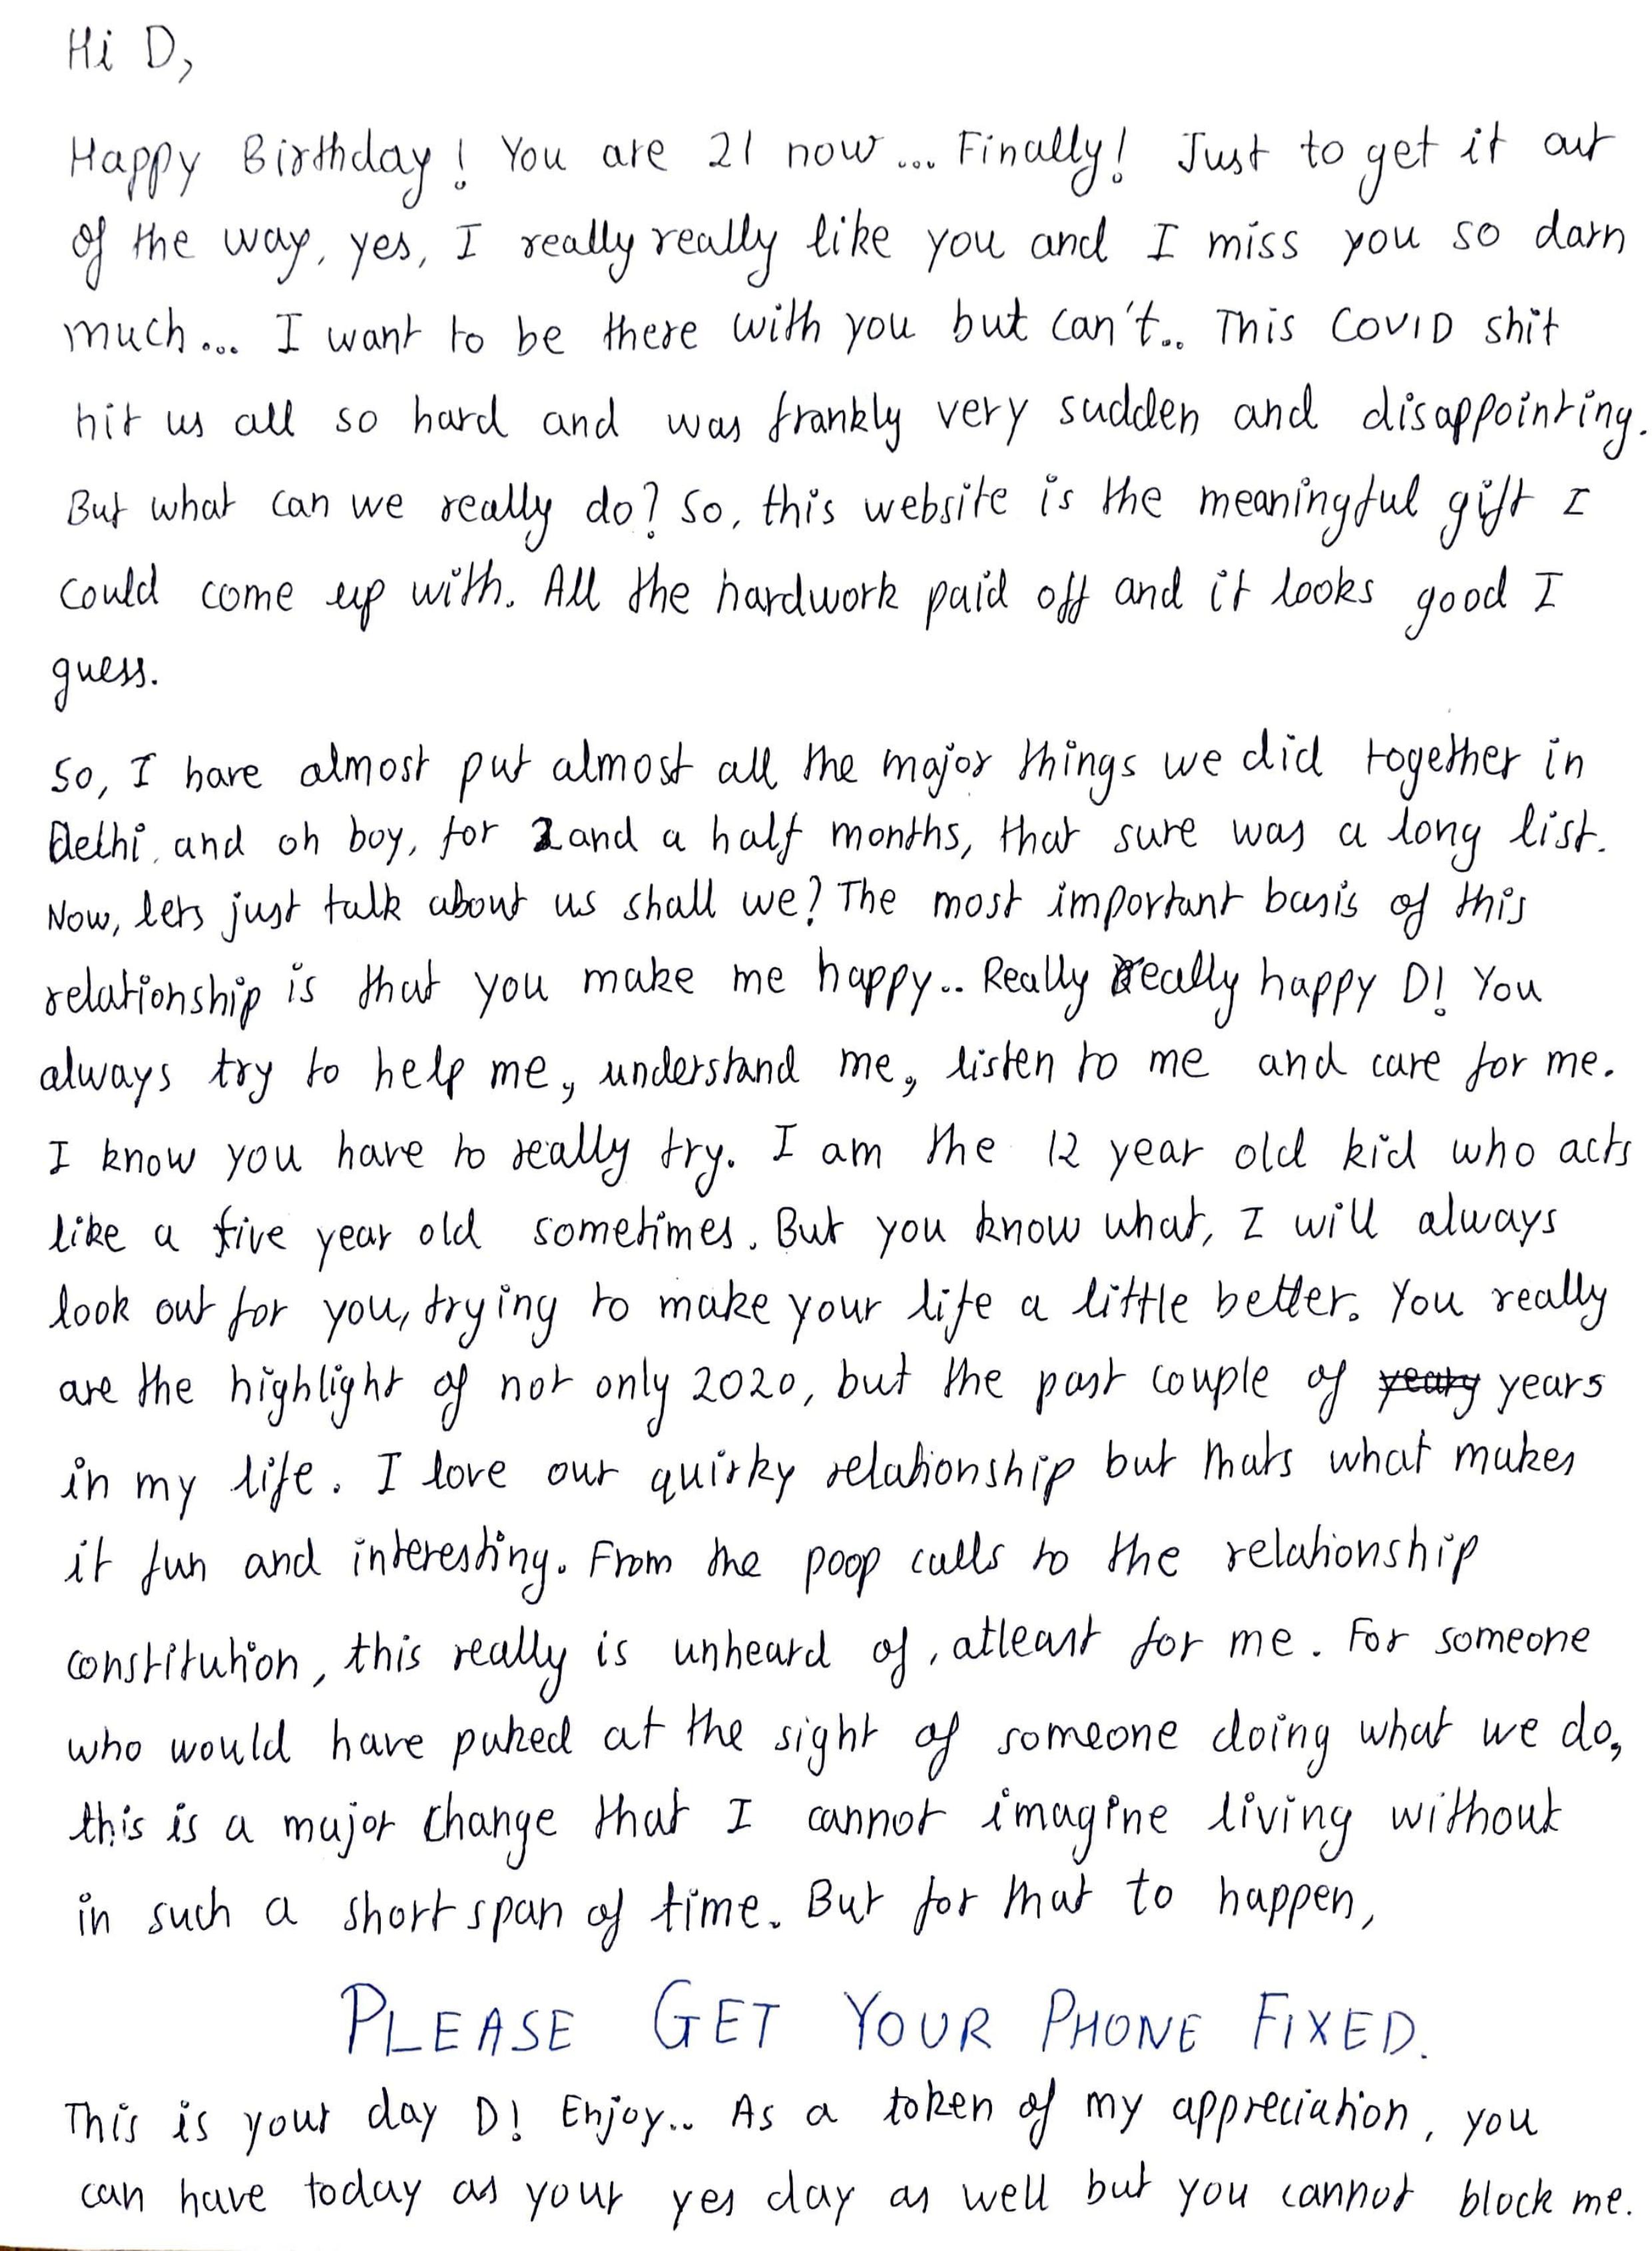 Hi D,
Happy Birthday! You are 21 now... Finally! Just to get it out
of the way, yes, I really really like you and I miss you so darn
much... I want to be there with you but can't.. This COVID shit
hit us all so hard and was frankly very sudden and disappointing.
But what can we really do? So, this website is the meaningful gift I
could come up with. All the hardwork paid off and it looks good I
guess.
So, I have almost put almost all the major things we did together in
Delhi, and oh boy, for 2 and a half months, that sure was a long list.
Now, lets just talk about us shall we? The most important basis of this
relationship is that you make me happy.. Really Really happy D! You
always try to help me, understand me, listen to me and care for me.
I know you have to really try. I am the 12 year old kid who acts
like a five year old sometimes. But you know what, I will always
look out for you, trying to make your life a little better. You really
are the highlight of not only 2020, but the past couple of years
in my life. I love our quirky relationship but thats what makes
it fun and interesting. From the poop calls to the relationship
constitution, this really is unheard of, atleast for me. For someone
who would have puked at the sight of someone doing what we do,
this is a major change that I cannot imagine living without
in such a short span of time. But for that to happen,
PLEASE GET YOUR PHONE FIXED.
This is your day D! Enjoy.. As a token of my appreciation, you
can have today as your yes day as well but you cannot block me.